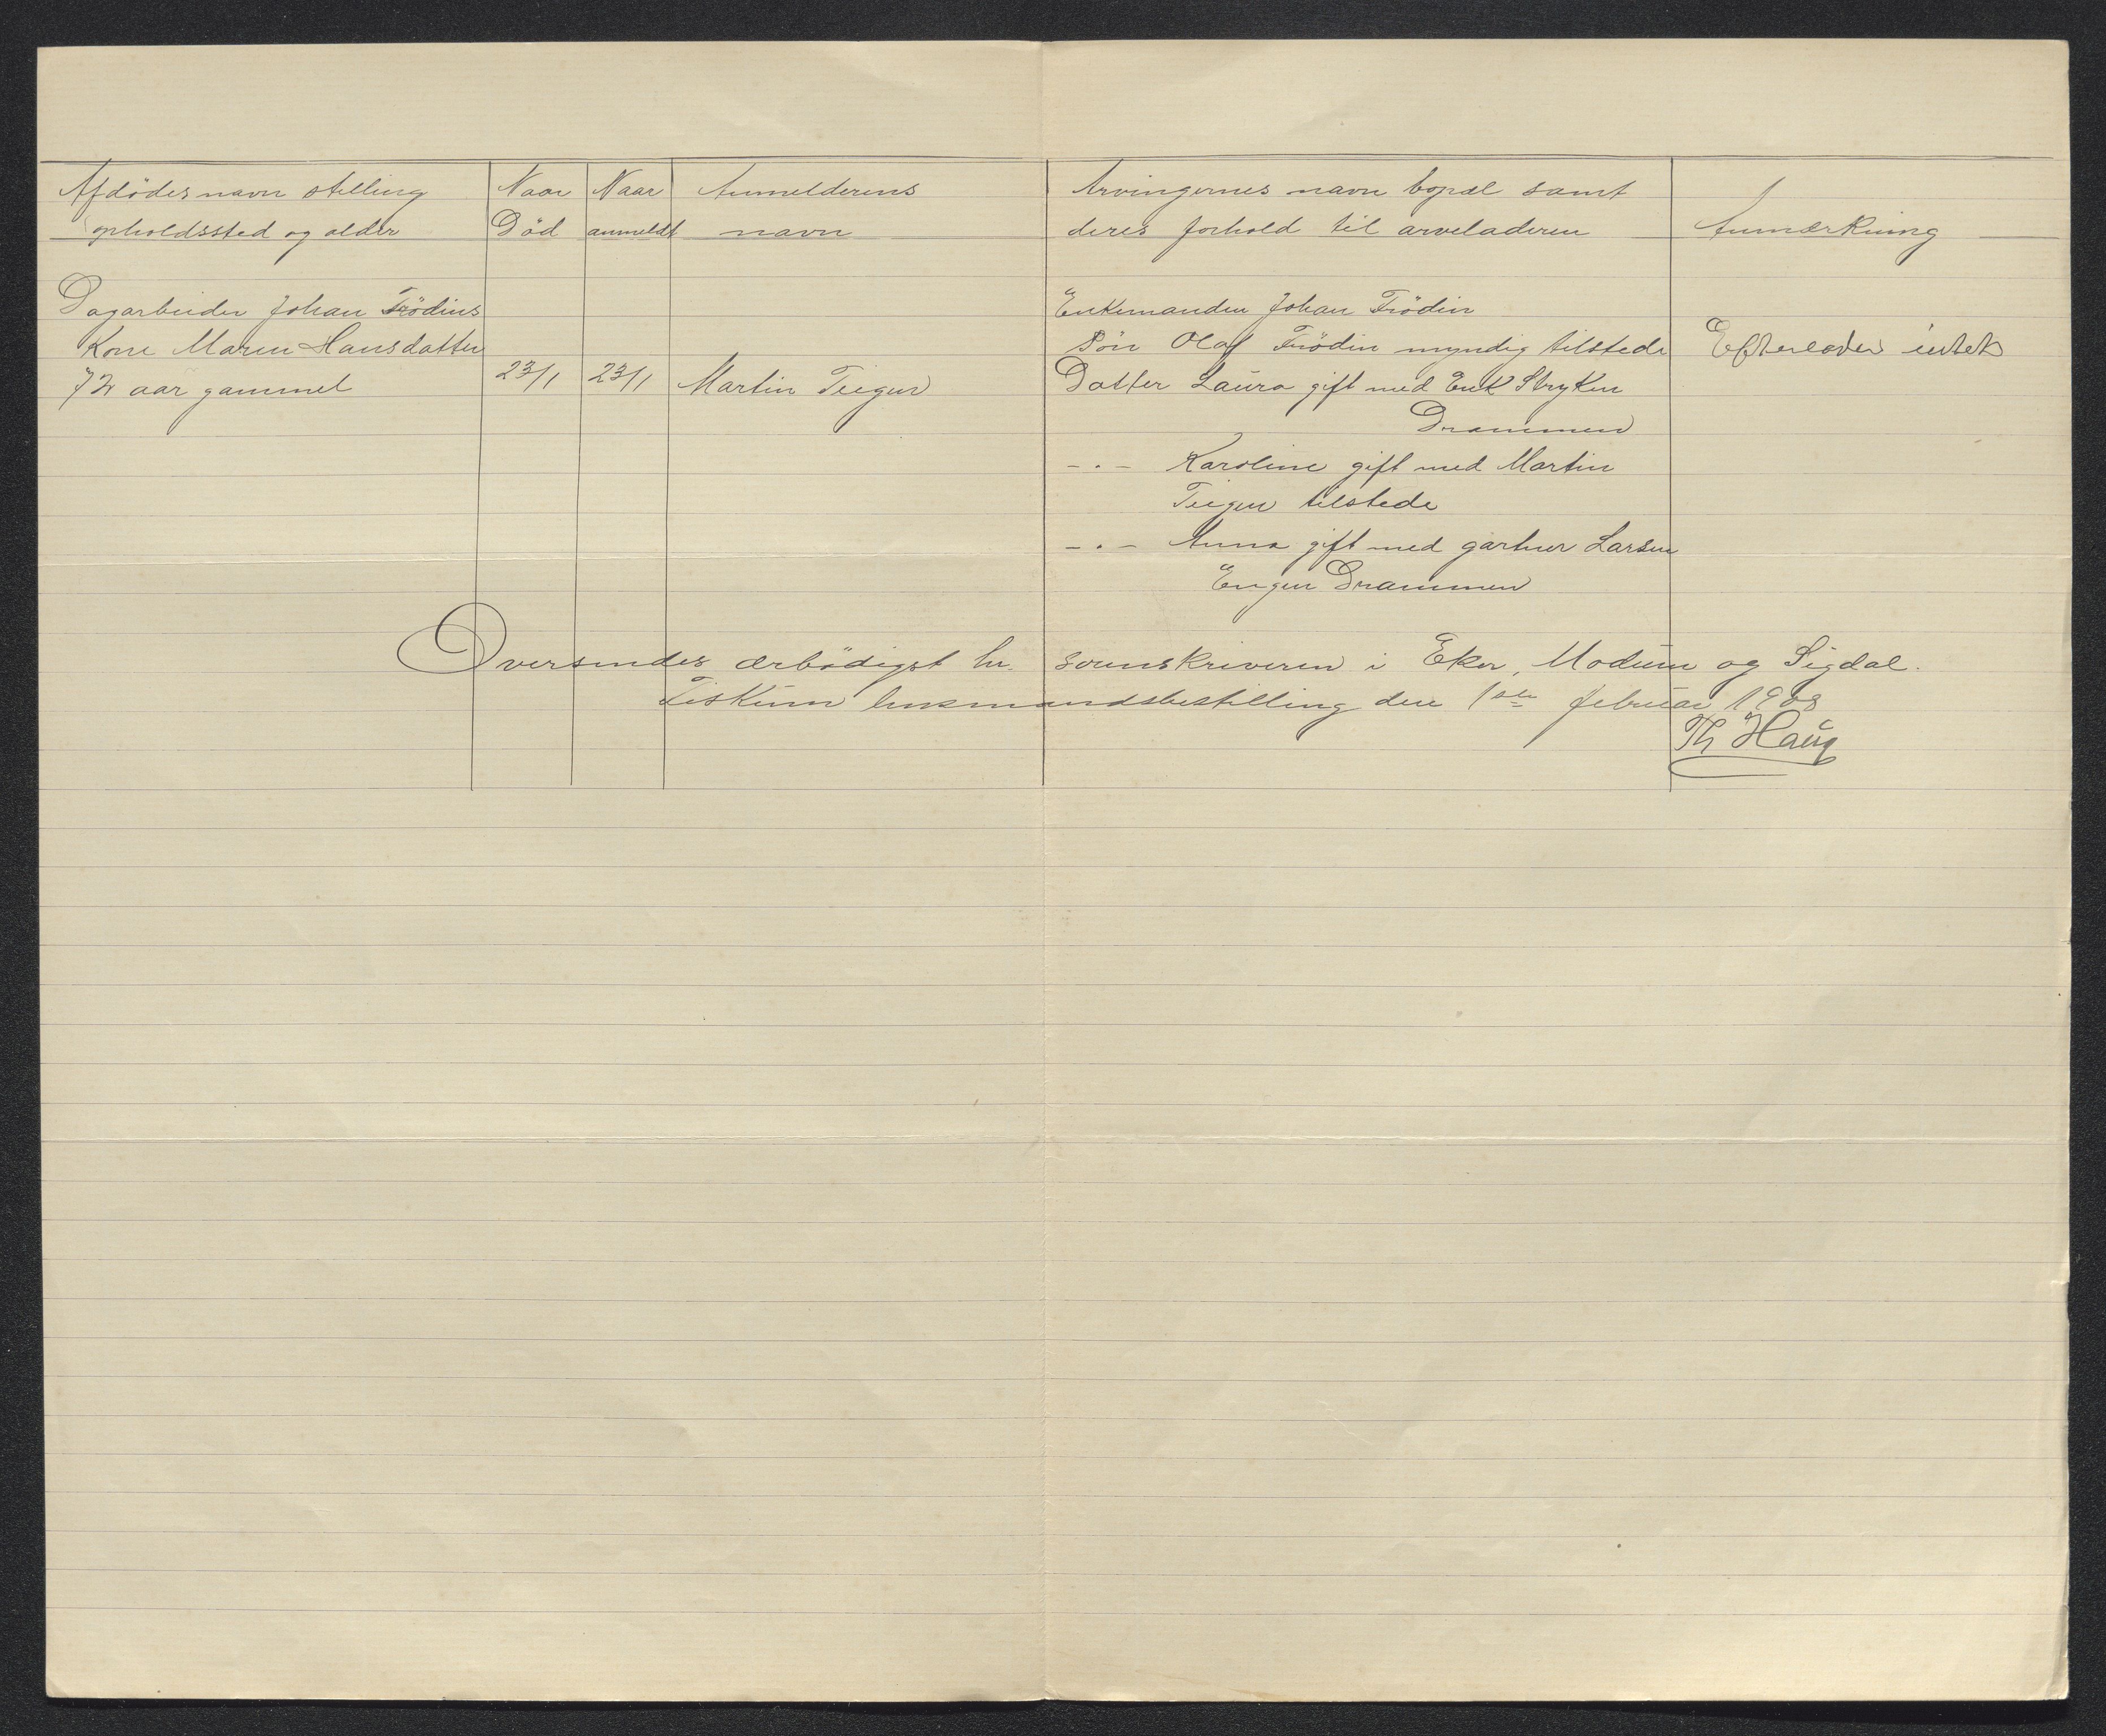 Afdödes navn stilling
opholdssted og alder
Naar
Död
Naar
anmeldt
Anmelderens
navn
Arvingernes navn bopæl samt
deres forhold til arveladeren
Anmærkning
Dagarbeider Johan Frödins
Kone Maren Hansdatter
72 aar gammel
23/1
23/1
Martin Teigen
Enkemanden Johan Frödin
Sön Olaf Frödin myndig tilstede
Datter Laura gift med Stryken
Drammen
-.- Karoline gift med Martin
Teigen tilstede
-.- Anna gift med gartner Larsen
Engen Drammen
Efterlader intet
Oversendes ærbödigst hr. sorenskriveren i Eker, Modum og Sigdal.
Fiskum lensmandsbestilling den 1ste februar 1908
Th Haug